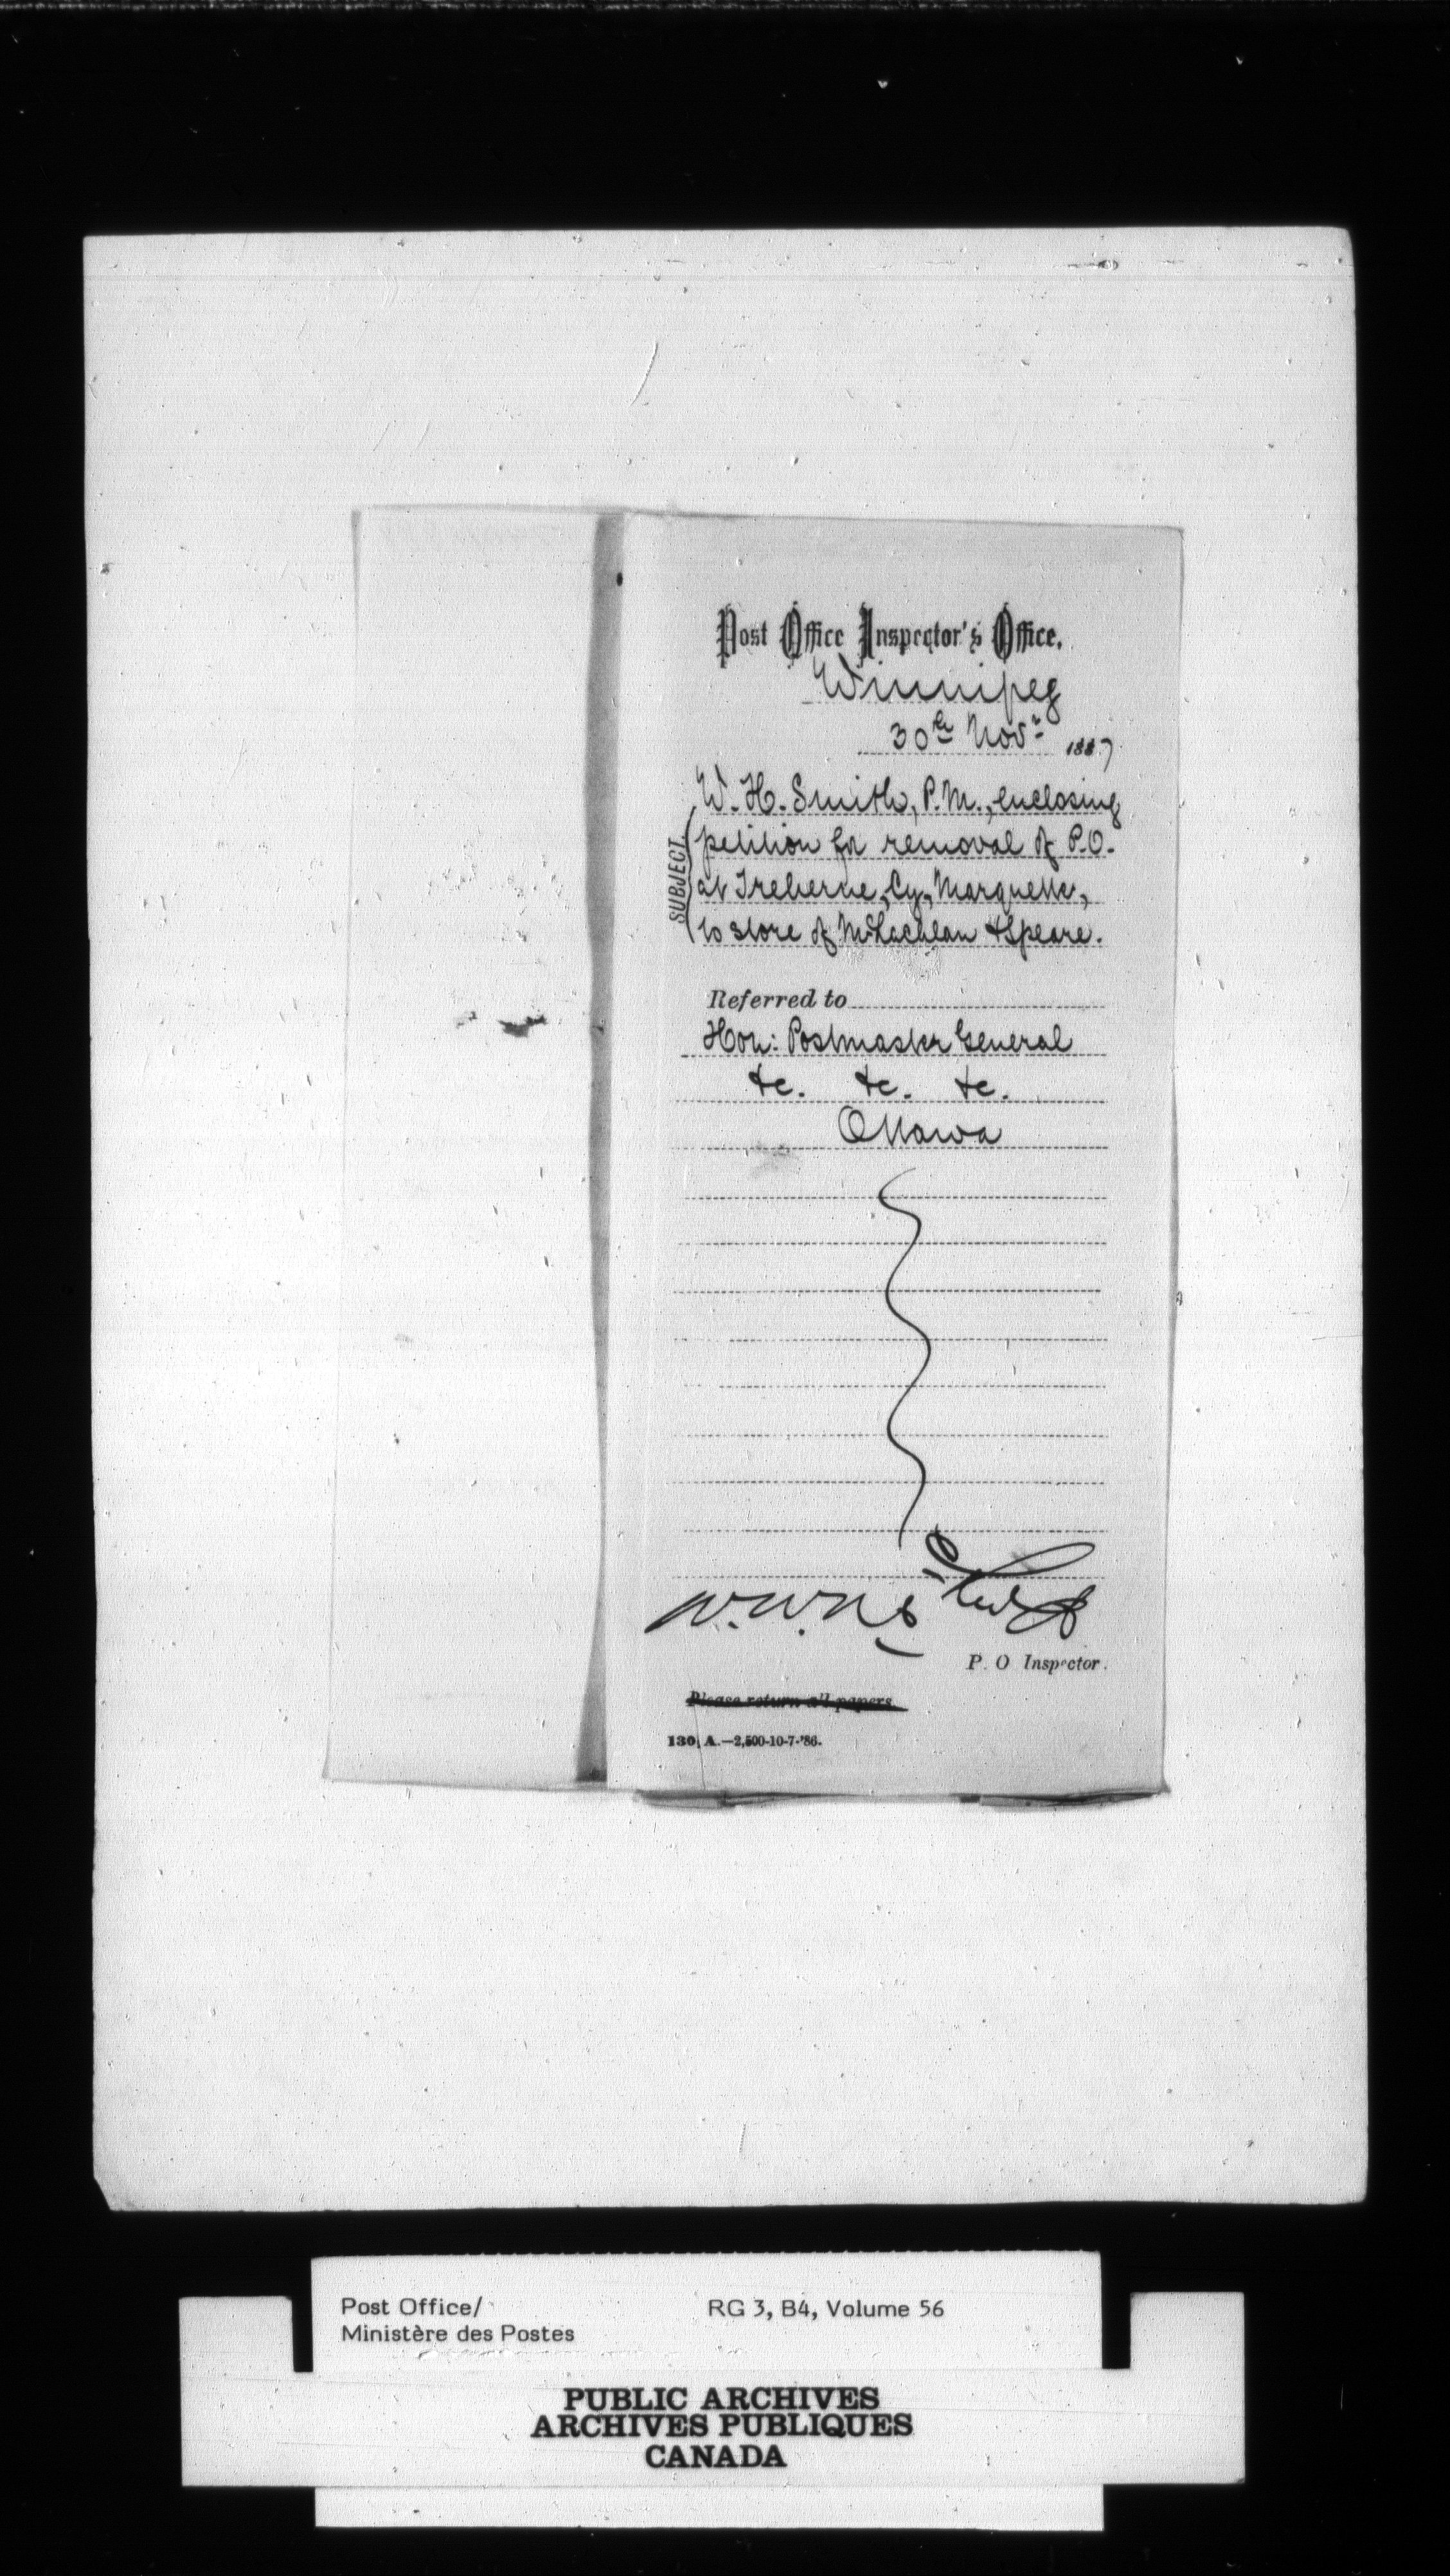 Post Office Inspector's Office.
Winnipeg
30th Novr 1887
SUBJECT.
W. H. Smith, P.M., enclosing
petition for removal of P.O.
at Treherne, Cy, Marquette,
to store of McLachlan & Speare.
Referred to
Hon: Postmaster General
&c. &c. &c.
Ottawa
W. W. McLeod
P. O Inspector.
Please return all papers.
130, A.—2,500-10-7-'86.
Post Office/
Ministère des Postes
RG 3, B4, Volume 56
PUBLIC ARCHIVES
ARCHIVES PUBLIQUES
CANADA